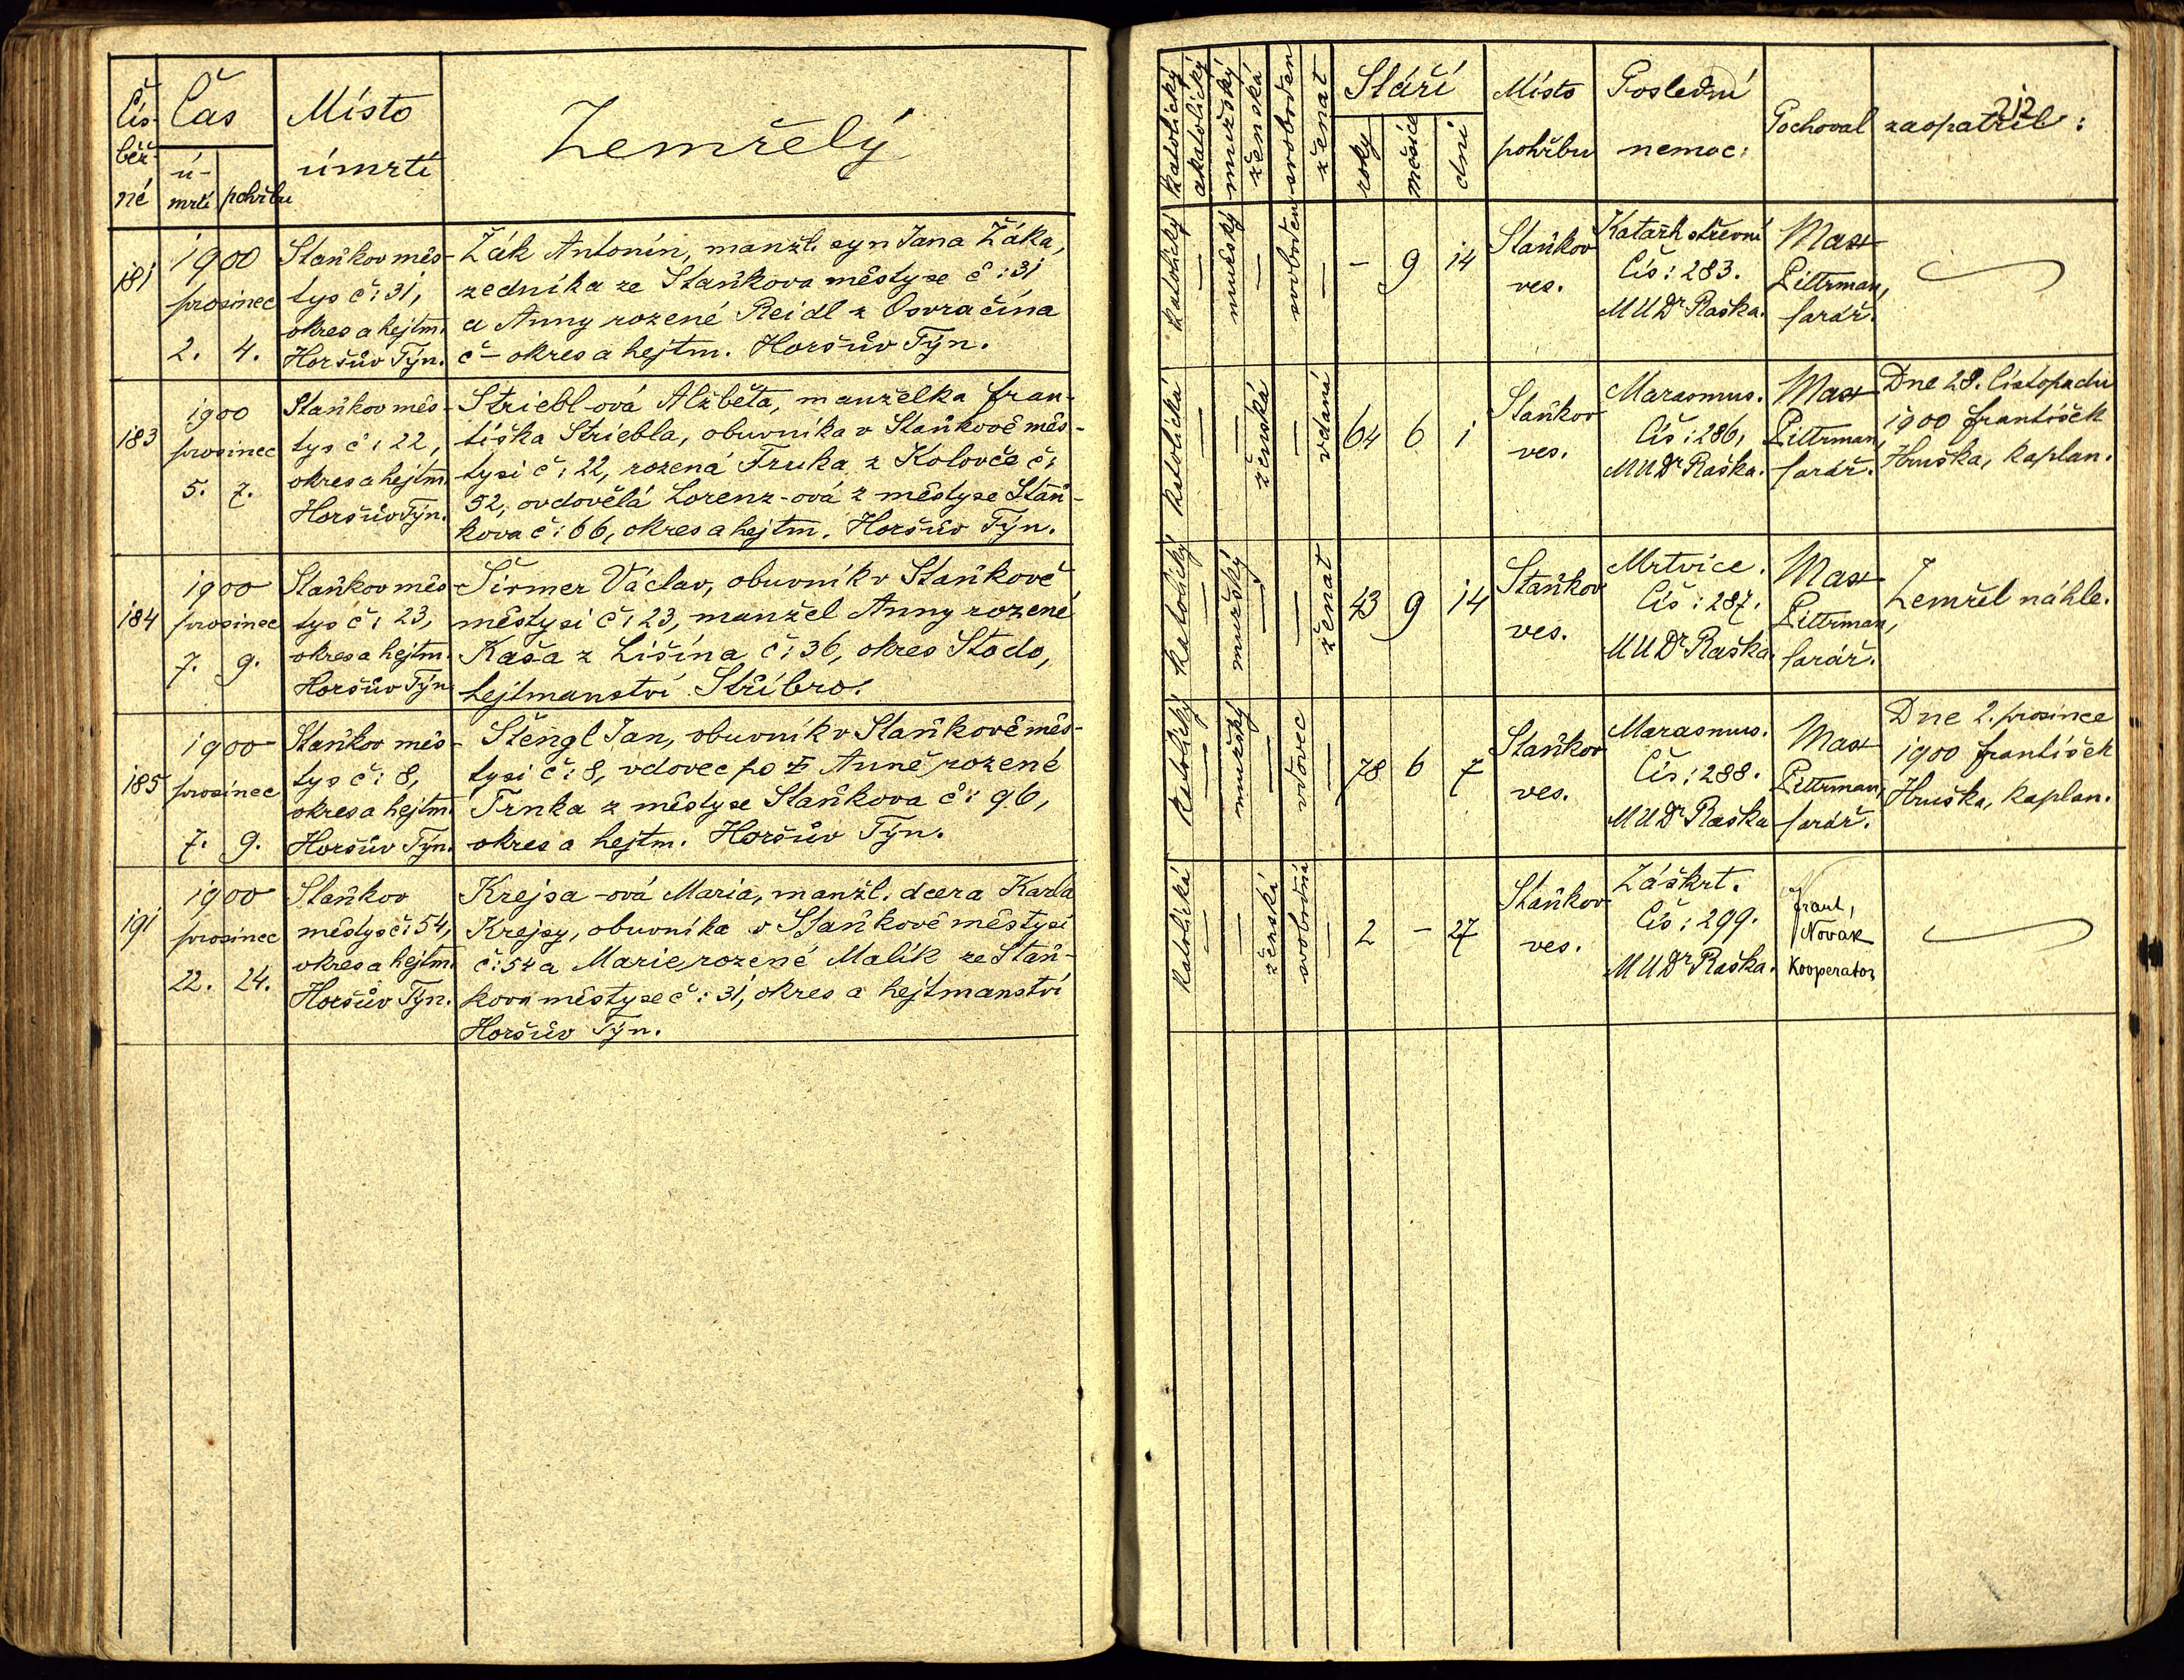 Čís. běž- né
Čas
ú- mrtí
pohřbu
Místo úmrtí
Zemřelý
181
1900
prosinec
2. 4.
Staňkov měs-
tys č: 31,
okres a hejtm.
Horšův Týn.
Žák Antonín, manžl. syn Jana Žáka,
zedníka ze Staňkova městyse č: 31
a Anny rozené Reidl z Osvračína
č – okres a hejtm. Horšův Týn.
183
1900
prosinec
5. 7.
Staňkov měs-
tys č: 22,
okres a hejtm.
Horšův Týn.
Striebl-ová Alžběta, manželka Fran-
tiška Striebla, obuvníka v Staňkově měs-
tysi č: 22, rozená Fruka z Koloveče č:
52, ovdovělá Lorenz-ová z městyse Staň-
kova č: 66, okres a hejtm. Horšův Týn.
184
1900
prosinec
7. 9.
Staňkov měs-
tys č: 23,
okres a hejtm.
Horšův Týn.
Širmer Václav, obuvník v Staňkově
městysi č: 23, manžel Anny rozené
Kaša z Lišína č: 36, okres Stodo,
hejtmanství Stříbro.
185
1900
prosinec
7. 9.
Staňkov měs-
tys č: 8,
okres a hejtm.
Horšův Týn.
Štengl Jan, obuvník v Staňkově měs-
tysi č: 8, vdovec po Anně rozené
Trnka z městyse Staňkova č: 96,
okres a hejtm. Horšův Týn.
191
1900
prosinec
22. 24.
Staňkov
městys č: 54,
okres a hejtm.
Horšův Týn.
Krejsa-ová Maria, manžl. dcera Karla
Krejsy, obuvníka v Staňkově městysi
č: 54 a Marie rozené Malík ze Staň-
kova městyse č: 31, okres a hejtmanství
Horšův Týn.
212
katolický
akatolický
mužský
ženská
svoboden
ženat
Stáří
roky
měsíce
dní
Místo
pohřbu
Poslední
nemoc:
Pochoval
zaopatřil:
katolický
mužský
svoboden
– 9 14
Staňkov
ves.
Katarh střevní
Čís: 283.
MUDr Raška.
Max
Pittrman,
farář.
katolická
ženská
vdaná
64 6 1
Staňkov
ves.
Marasmus.
Čís: 286,
MUDr Raška.
Max
Pittrman,
farář.
Dne 28. listopadu
1900 František
Hruška, kaplan.
katolický
mužský
ženat
43 9 14
Staňkov
ves.
Mrtvice.
Čís: 287.
MUDr Raška.
Max
Pittrman,
farář.
Zemřel náhle.
katolický
mužský
vdovec
78 6 7
Staňkov
ves.
Marasmus.
Čís: 288.
MUDr Raška
Max
Pittrman,
farář.
Dne 2. prosince
1900 František
Hruška, kaplan.
katolická
ženská
svobodná
2 – 27
Staňkov
ves.
Záškrt.
Čís: 299.
MUDr Raška.
Frant,
Novák
Kooperator